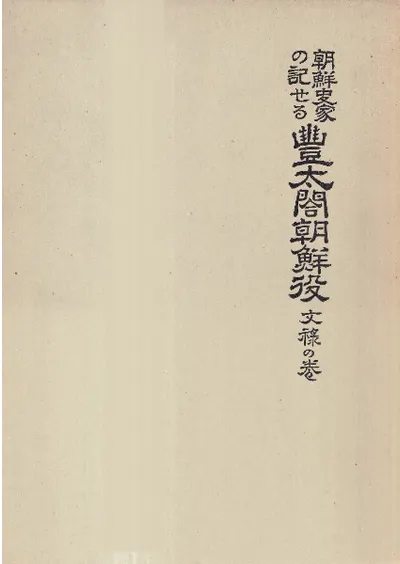 朝鮮史家
の記せる
豐太閤朝鮮役
文祿の巻